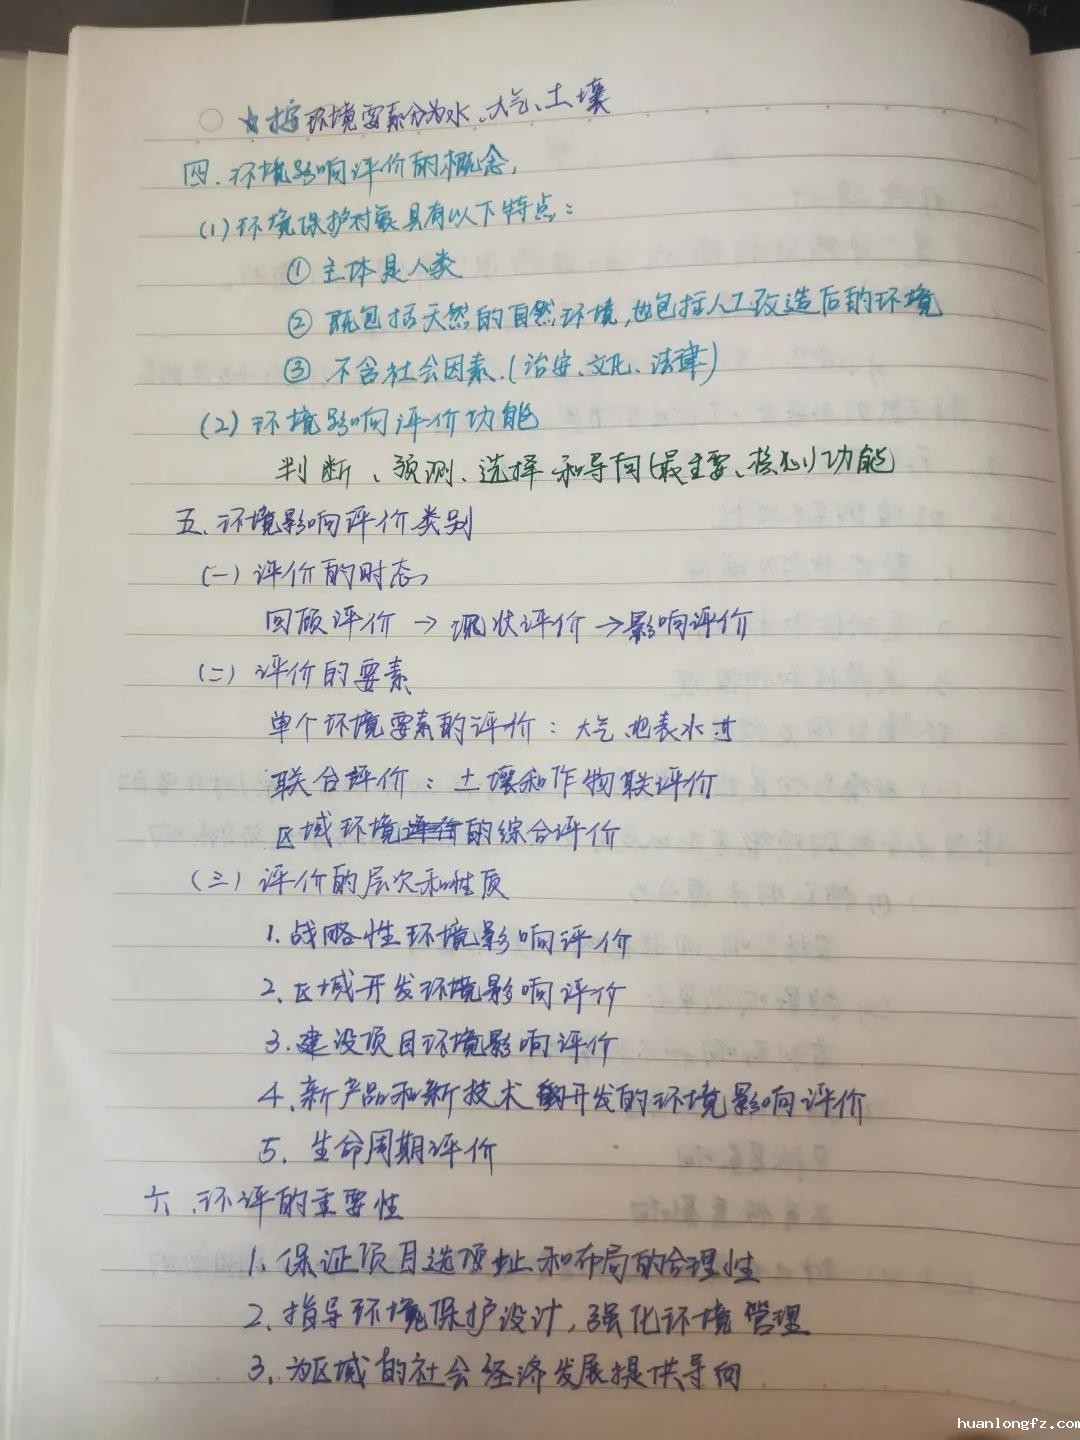 ☆按环境要素分为水、大气、土壤
四、环境影响评价的概念,
(1)环境保护对象具有以下特点:
①主体是人类
②既包括天然的自然环境,也包括人工改造后的环境
③不含社会因素.(治安、文化、法律)
(2)环境影响评价功能
判断、预测、选择和导向(最主要、核心)功能
五、环境影响评价类别
(一)评价的时态
回顾评价→现状评价→影响评价
(二)评价的要素
单个环境要素的评价:大气、地表水
联合评价:土壤和作物联评价
区域环境的综合评价
(三)评价的层次和性质
1.战略性环境影响评价
2.区域开发环境影响评价
3.建设项目环境影响评价
4.新产品和新技术开发的环境影响评价
5.生命周期评价
六、环评的重要性
1.保证项目选项址和布局的合理性
2.指导环境保护设计,强化环境管理
3.为区域的社会经济发展提供导向
F4
huanlongfz.com